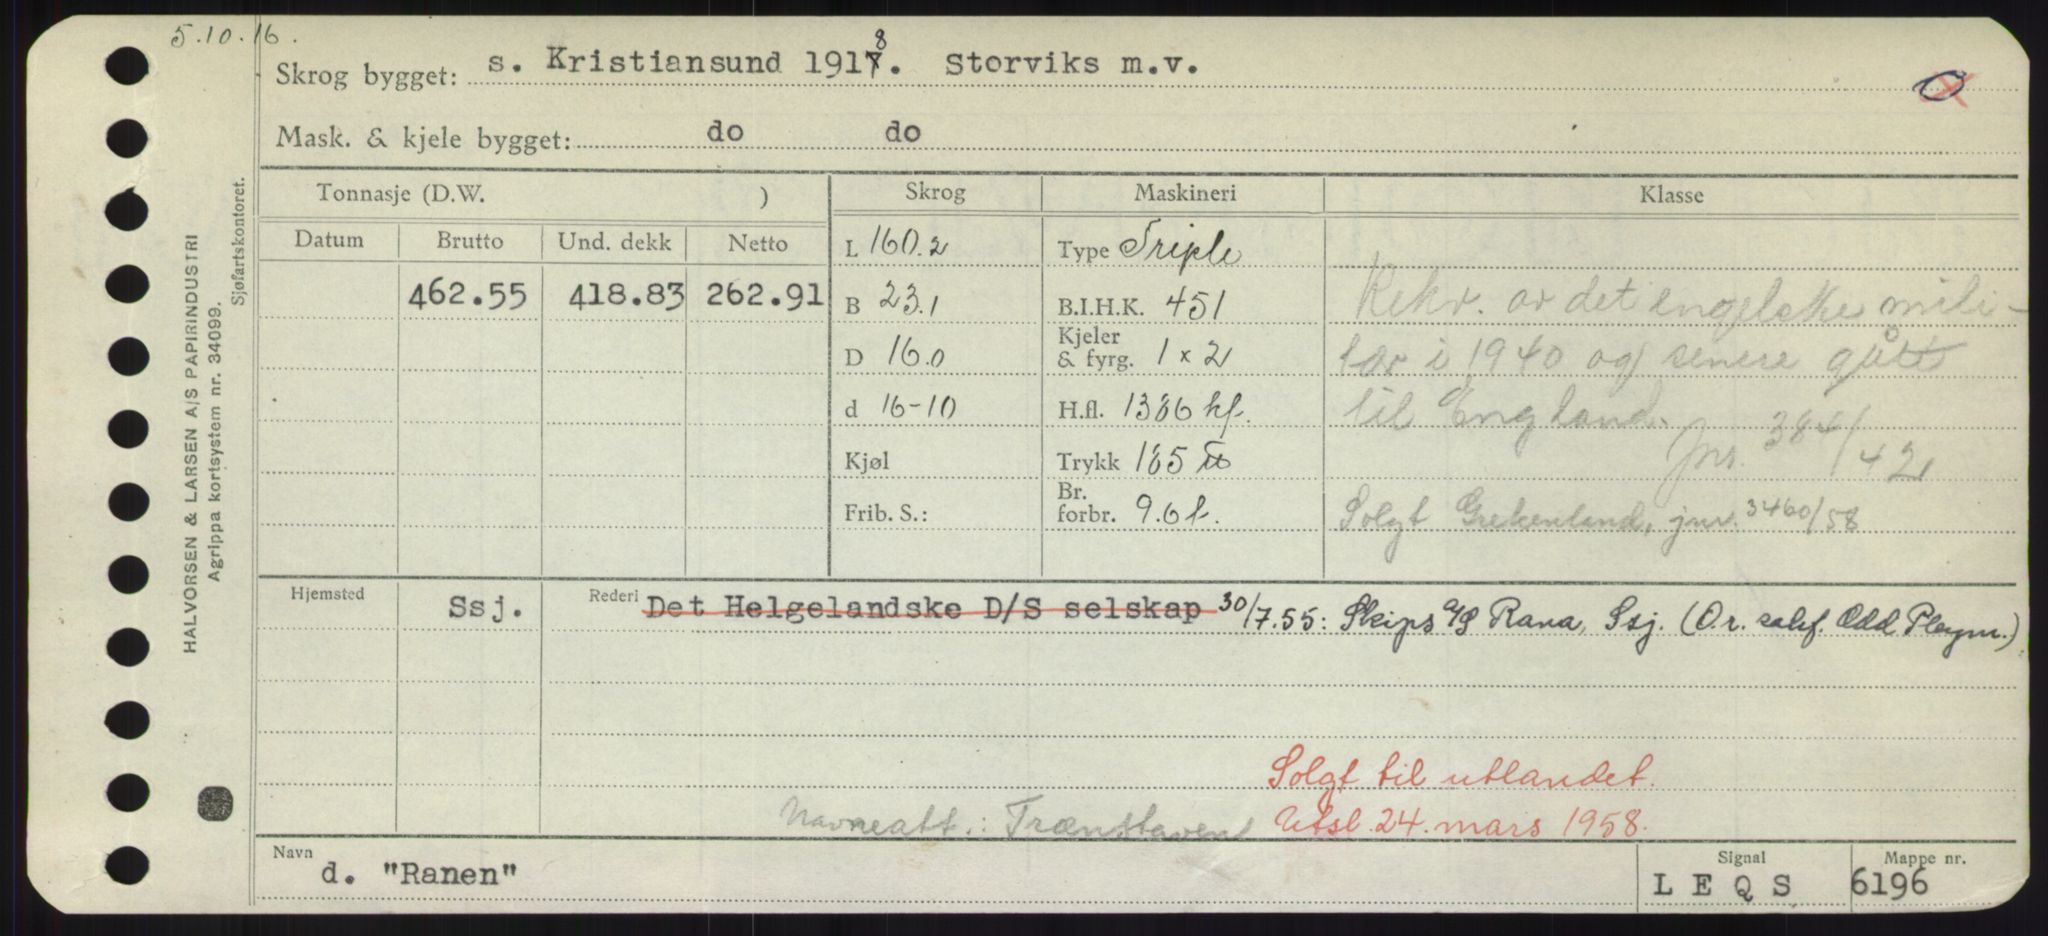 5.10.16.
Skrog bygget: s. Kristiansund 1918. Storviks m.v.
Mask. & kjele bygget: do do
Tonnasje (D.W. ) Skrog Maskineri Klasse
Datum Brutto Und. dekk Netto
462.55 418.83 262.91
L 160.2
B 23.1
D 16.0
d 16-10
Kjøl
Frib. S.:
Type Triple
B.I.H.K. 451
Kjeler & fyrg. 1 x 2
H.fl. 1386 kf.
Trykk 185 lb
Br. forbr. 9.6 t.
Rekv. av det engelske mili-
tær i 1940 og senere gått
til England.
Jnr. 384/42
Solgt Grekenland, jnr. 3460/58
Hjemsted Ssj. Rederi Det Helgelandske D/S selskap 30/7.55: Skips A/S Rana, Ssj. (O.r. sakf. Odd Pleym.)
Solgt til utlandet.
Navneatt.: Trænstaven Utsl. 24. mars 1958.
Navn d. "Ranen" Signal L E Q S Mappe nr. 6196
HALVORSEN & LARSEN A/S PAPIRINDUSTRI
Agrippa kortsystem nr. 34099.
Sjøfartskontoret.